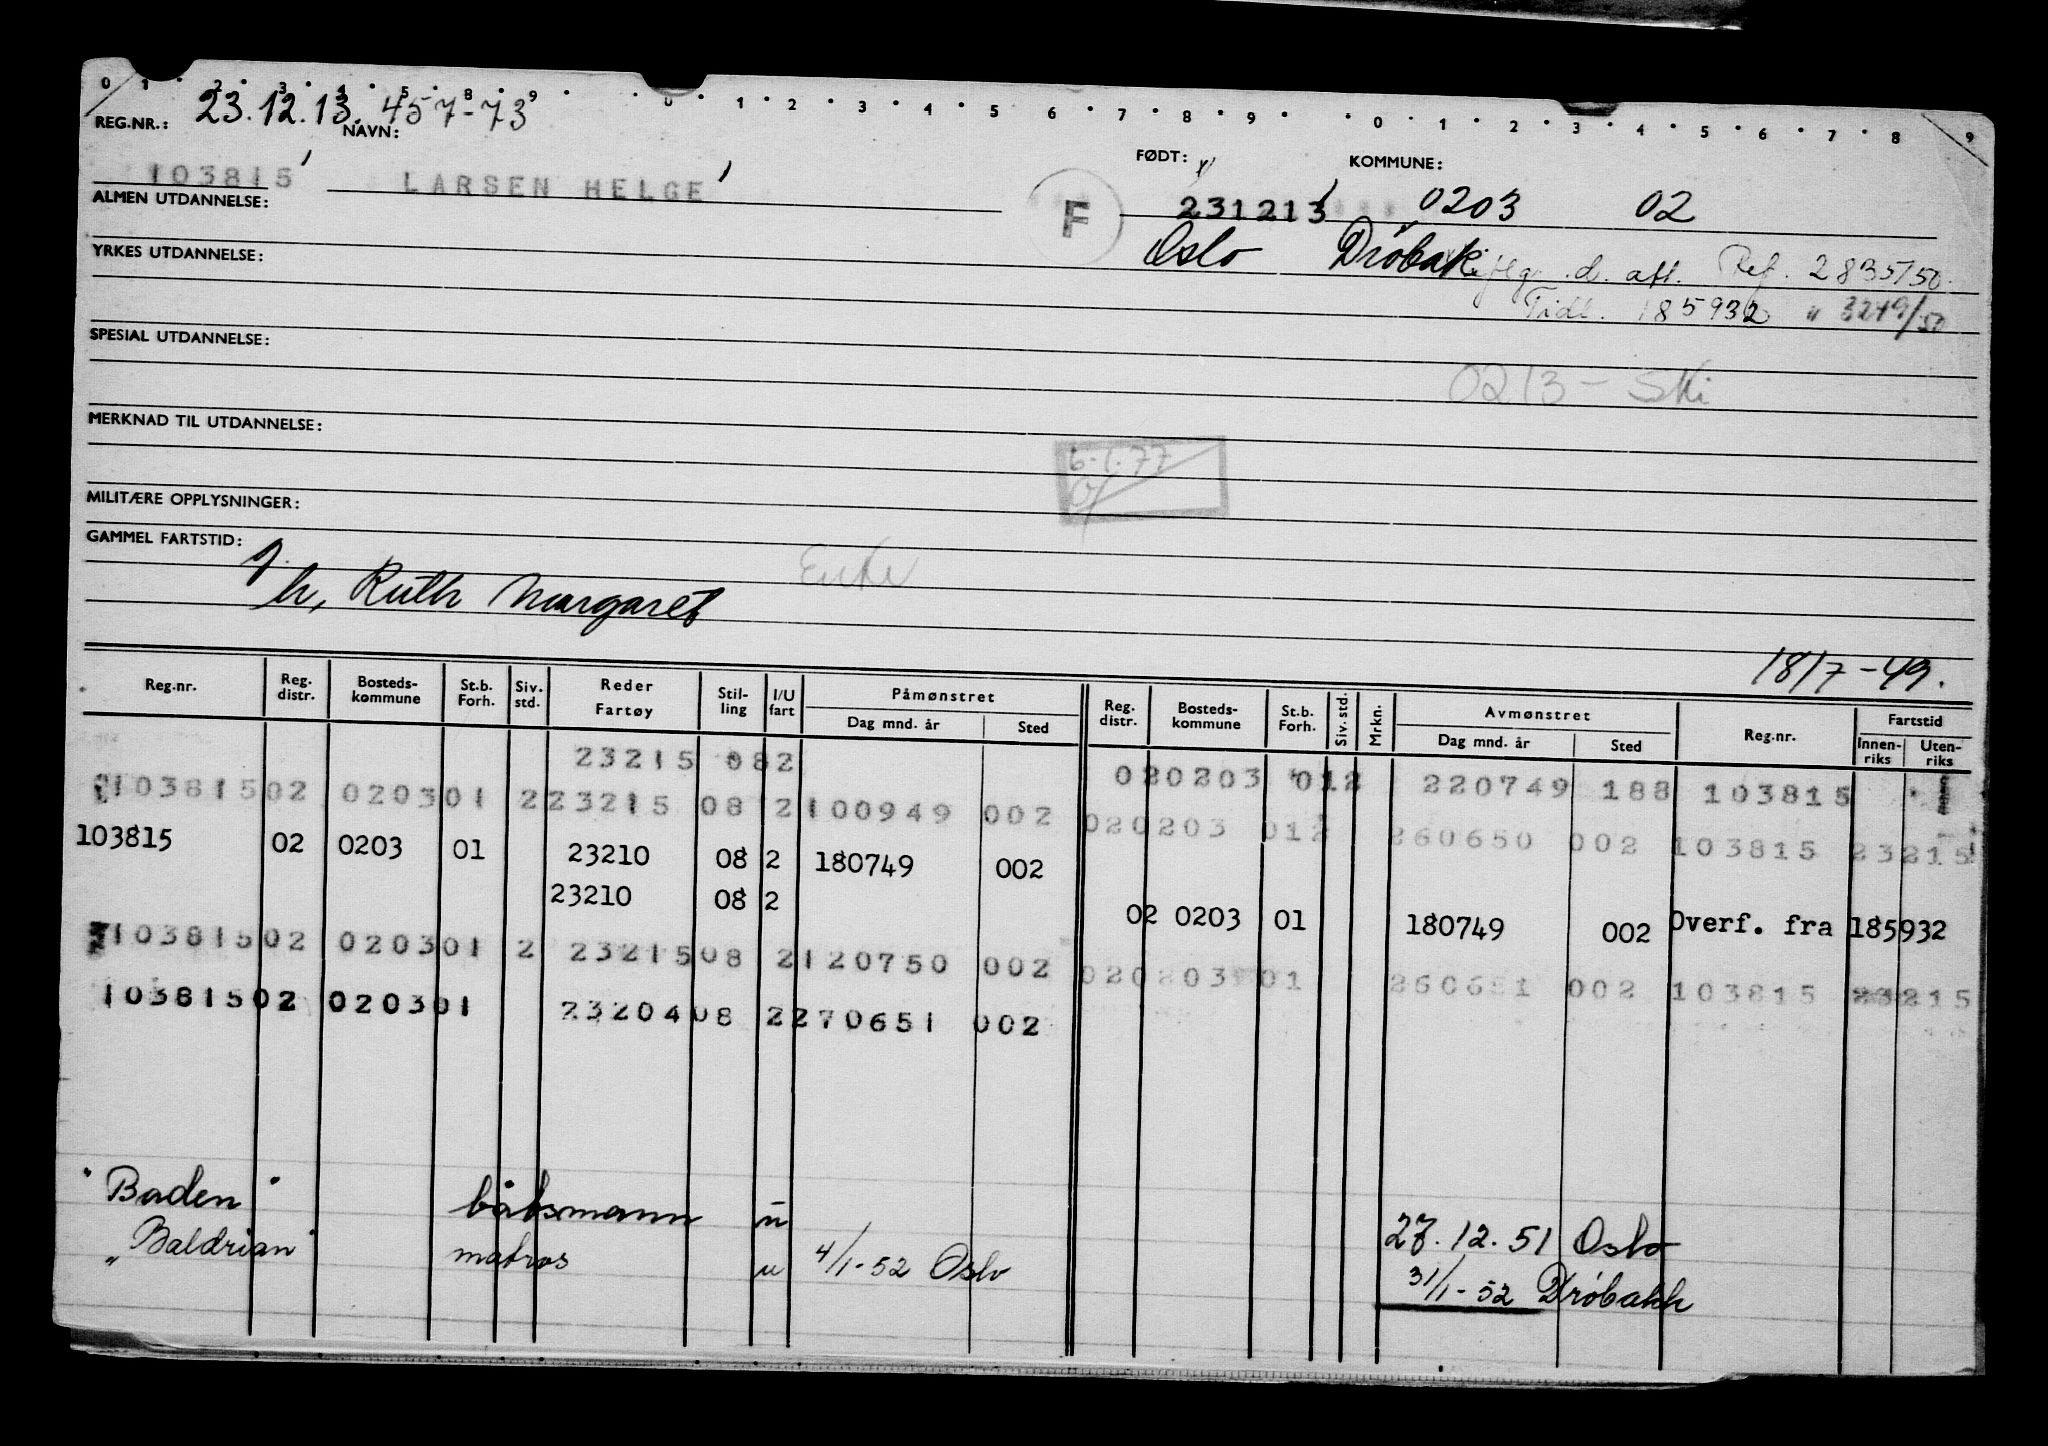 0 1 2 3 4 5 8 9 0 1 2 3 4 5 6 7 8 9 0 1 2 3 4 5 6 7 8 9
23.12.13. 457-73
REG.NR.: NAVN: FØDT: KOMMUNE:
103815 LARSEN HELGE F 231213 0203 02
ALMEN UTDANNELSE:
Oslo Drøbak flg. d. att. Ref. 2835/50.
YRKES UTDANNELSE:
Tidl. 185932 " 3249/50
SPESIAL UTDANNELSE:
0213 - Ski
MERKNAD TIL UTDANNELSE:
6.1.77
MILITÆRE OPPLYSNINGER:
GAMMEL FARTSTID:
Enke
h, Ruth Margaret
18/7-49.
Reg.nr. Reg. distr. Bosteds-kommune St.b. Forh. Siv. std. Reder Fartøy Stil-ling I/U fart Påmønstret Dag mnd. år Sted Reg. distr. Bosteds-kommune St.b. Forh. Siv. std. Mrkn. Avmønstret Dag mnd. år Sted Reg.nr. Fartstid Innen-riks Uten-riks
23215 082 020203 012 220749 188 103815
103815 02 0203 01 2 23215 08 2 100949 002 020203 012 260650 002 103815 23215
103815 02 0203 01 23210 08 2 180749 002
23210 08 2 02 0203 01 180749 002 Overf. fra 185932
103815 02 0203 01 2 23215 08 2 120750 002 020203 01 260651 002 103815 23215
103815 02 0203 01 23204 08 2 270651 002
"Baden" båtsmann u 27.12.51 Oslo
"Baldrian" matros u 4/1-52 Oslo 31/1-52 Drøbakk